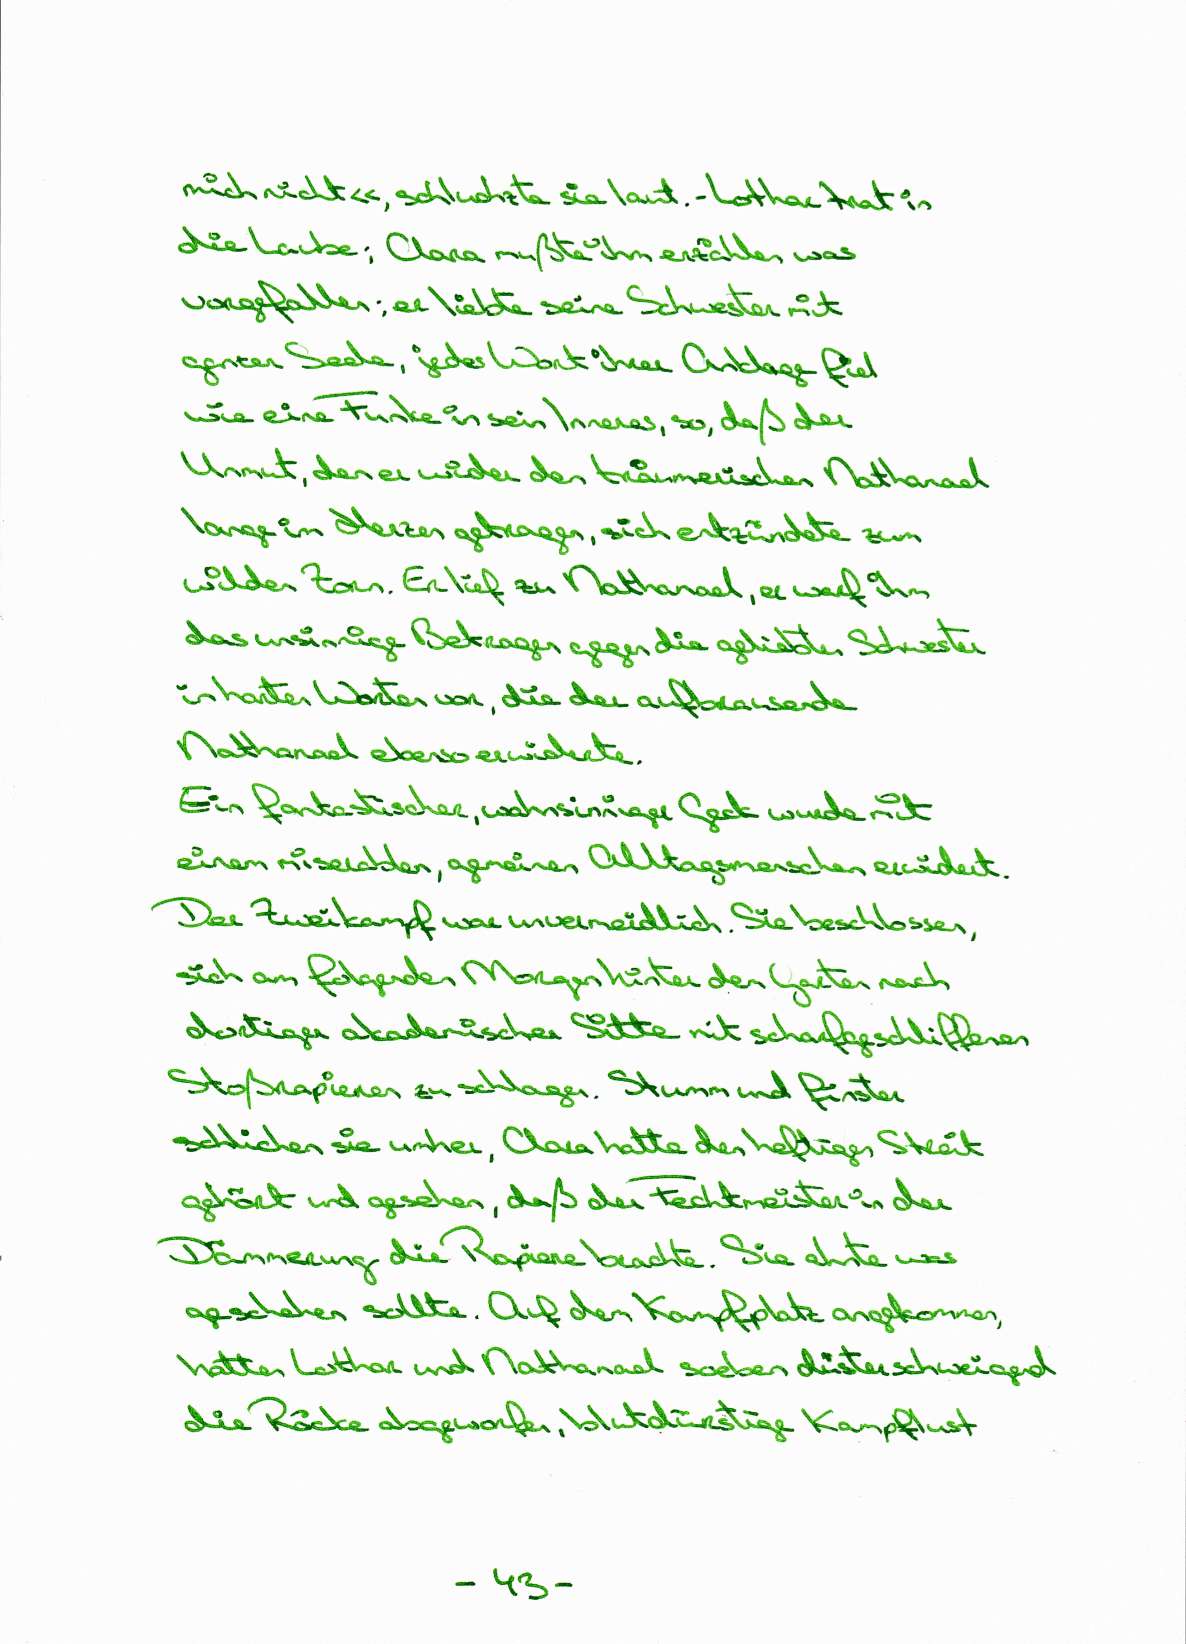 mich nicht<<, schluchzte sie laut. - Lothar trat in
die Laube; Clara mußte ihm erzählen was
vorgefallen; er liebte seine Schwester mit
ganzer Seele, jedes Wort ihrer Anklage fiel
wie eine Funke in sein Inneres, so, daß der
Unmut, den er wider den träumerischen Nathanael
lange im Herzen getragen, sich entzündete zum
wilden Zorn. Er lief zu Nathanael, er warf ihm
das unsinnige Betragen gegen die geliebten Schwester
in harten Worten vor, die der aufbrausende
Nathanael ebenso erwiderte.
Ein fantastischer, wahnsinniger Geck wurde mit
einem miserablen, gemeinen Alltagsmenschen erwidert.
Der Zweikampf war unvermeidlich. Sie beschlossen,
sich am folgenden Morgen hinter den Garten nach
dortiger akademischer Sitte mit scharfgeschliffenen
Stoßrapieren zu schlagen. Stumm und finster
schlichen sie umher, Clara hatte den heftigen Streit
gehört und gesehen, daß der Fechtmeister in der
Dämmerung die Rapiere brachte. Sie ahnte was
geschehen sollte. Auf dem Kampfplatz angekommen,
hatten Lothar und Nathanael soeben düsterschweigend
die Röcke abgeworfen, blutdürstige Kampflust
- 43 -